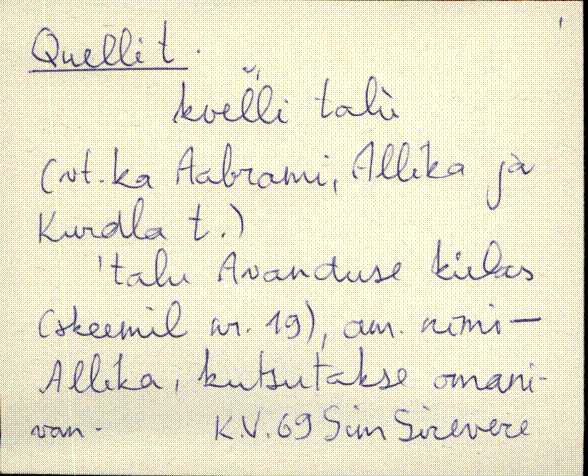 Quelli t.
kvel̆l̀i talù
(vt. ka Aabrami, Allika ja
Kurdla t.)
'talu Avanduse külas
(skeemil nr. 19), am. nimi —
Allika, kutsutakse omani-
van. K.V. 69 Sim Sirevere